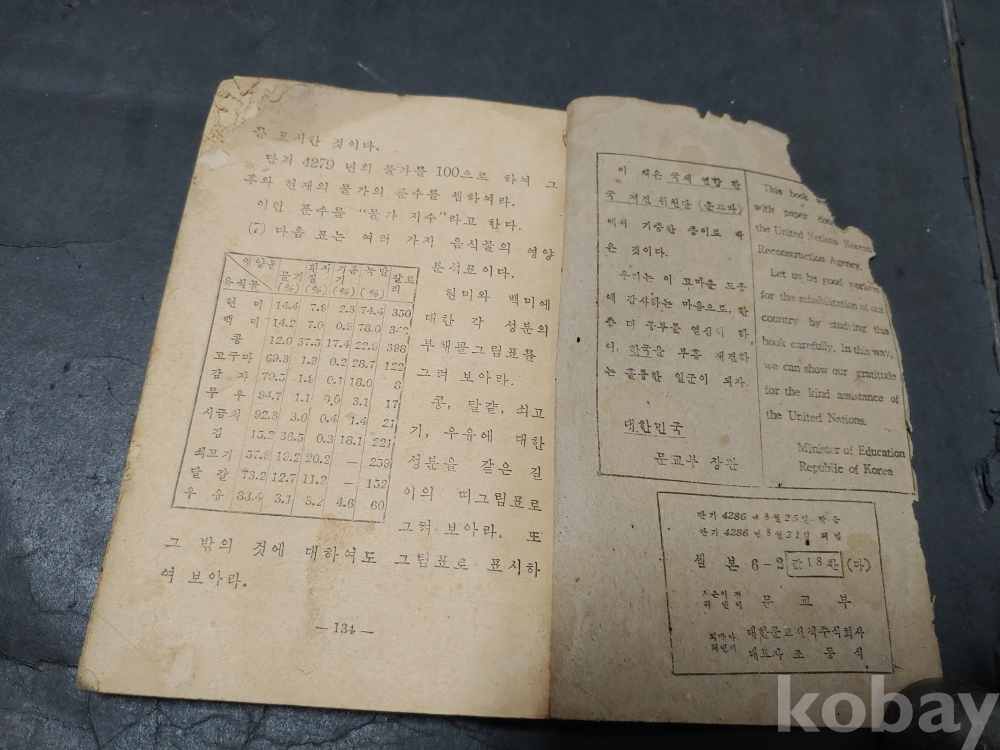 표시한 것이다.
단기 4279 년의 물가를 100으로 하여 그
후와 현재의 물가의 푼수를 셈하여라.
이런 푼수를 "물가 지수"라고 한다.
(7) 다음 표는 여러 가지 음식물의 영양
분석표이다.
영양분 물기 흰자질 기름기 녹말 칼로리
음식물 (%) (%) (%) (%)
현 미 14.4 7.9 2.3 74.4 350
백 미 14.2 7.0 0.9 78.0
콩 12.0 37.5 17.4 22.9 398
고구마 69.3 1.3 0.2 28.7 122
감 자 79.5 1.8 0.1 18.0 8
무 우 94.7 1.1 0.0 3.1 17
시금치 92.3 3.0 0.4 1.4 21
김 15.2 36.5 0.3 18.1 221
쇠고기 57.9 19.2 20.2 — 259
달 걀 73.2 12.7 11.2 — 152
우 유 33.4 3.1 3.2 4.6 60
현미와 백미에
대한 각 성분의
부채꼴그림표를
그려 보아라.
콩, 달걀, 쇠고
기, 우유에 대한
성분을 같은 길
이의 띠그림표로
그려 보아라. 또
그 밖의 것에 대하여도 그림표로 표시하
여 보아라.
— 134 —
이 책은 국제 연합 한
국 재건 위원단 (운끄라)
에서 기증한 종이로 박
은 것이다.
우리는 이 고마운 도움
에 감사하는 마음으로, 한
층 더 공부를 열심히 하
여, 한국을 부흥 재건하
는 훌륭한 일군이 되자.
대한민국
문교부 장관
This book
with paper
the United Nations Korean
Reconstruction Agency.
Let us be good workers
for the rehabilitation of our
country by studying this
book carefully. In this way,
we can show our gratitude
for the kind assistance of
the United Nations.
Minister of Education
Republic of Korea
단기 4286 년 8 월 25 일 박음
단기 4286 년 8 월 31 일 펴냄
셈 본 6-2 값 18 환 (다)
문 교 부
대한문교서적주식회사
대표자 조 동 식
kobay